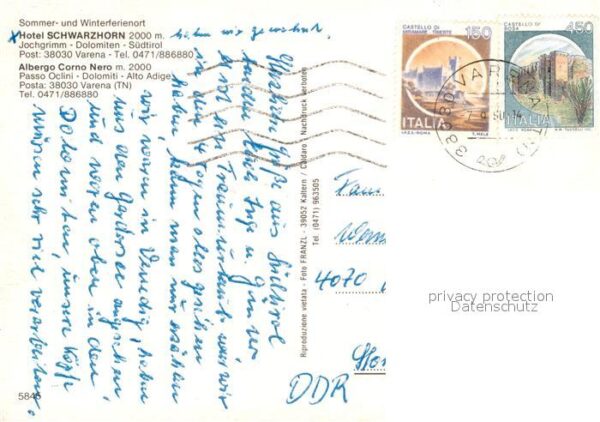 Sommer- und Winterferienort
x Hotel SCHWARZHORN 2000 m.
Jochgrimm - Dolomiten - Südtirol
Post: 38030 Varena - Tel. 0471/886880
Albergo Corno Nero m. 2000
Passo Oclini - Dolomiti - Alto Adige
Posta: 38030 Varena (TN)
Tel. 0471/886880
haben wir gewohnt,
Herzliche Grüße aus Südtirol
senden
Traumurlaub, was wir
in den 4 Tagen alles gesehen
haben, kann man nur erzählen
wir waren in Venedig, haben
uns den Gardasee angesehen
und waren oben in den
Dolomiten, unsere Köpfe
müssen sehr viel verarbeiten.
Riproduzione vietata - Foto FRANZL - 39052 Kaltern / Caldaro \ Nachdruck verboten
Tel. (0471) 963505
5845
CASTELLO DI
MIRAMARE TRIESTE
150
ITALIA
I.P.Z.S. ROMA
T. MELE
CASTELLO DI
BOSA
450
ITALIA
38030 VARENA (TN)
Fam
4070
DDR
privacy protection
Datenschutz